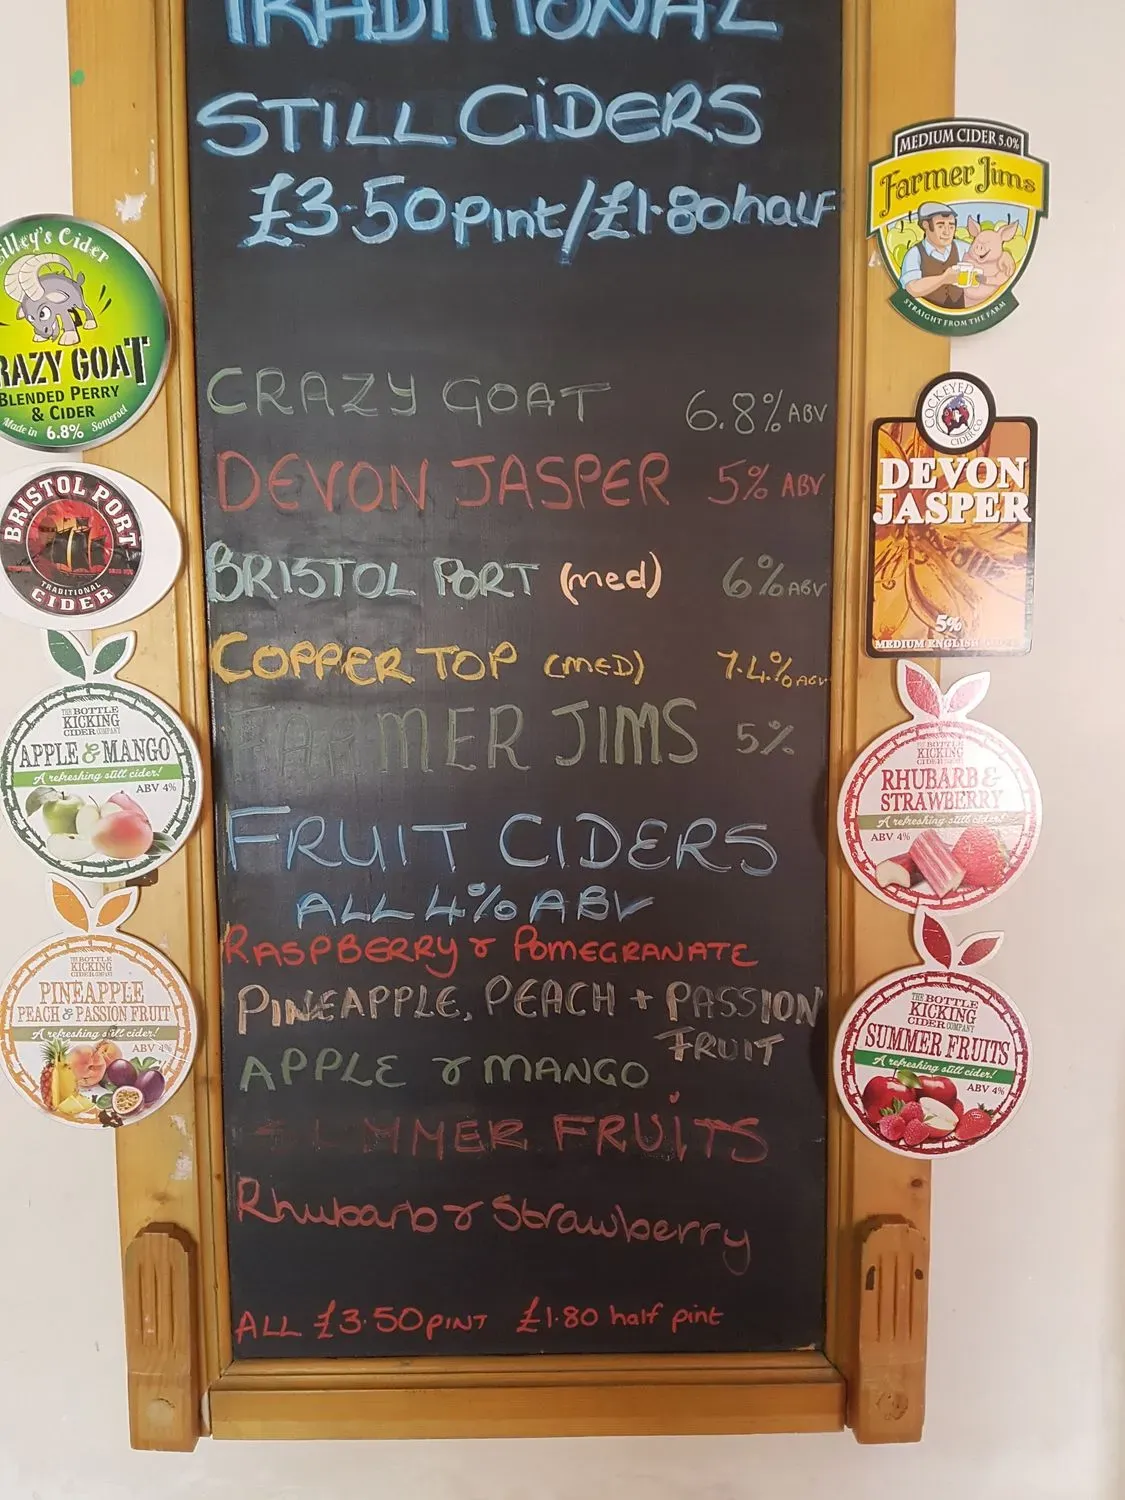 TRADITIONAL
STILL CIDERS
£3.50 pint/£1.80 half
CRAZY GOAT 6.8% ABV
DEVON JASPER 5% ABV
BRISTOL PORT (med) 6% ABV
COPPER TOP (MED) 7.4% ABV
FARMER JIMS 5%
FRUIT CIDERS
ALL 4% ABV
RASPBERRY & POMEGRANATE
PINEAPPLE, PEACH + PASSION
FRUIT
APPLE & MANGO
SUMMER FRUITS
Rhubarb & Strawberry
ALL £3.50 PINT £1.80 half pint
illey's Cider
RAZY GOAT
BLENDED PERRY
& CIDER
Made in 6.8% Somerset
BRISTOL PORT
TRADITIONAL
CIDER
THE BOTTLE
KICKING
CIDER COMPANY
APPLE & MANGO
A refreshing still cider!
ABV 4%
THE BOTTLE
KICKING
CIDER COMPANY
PINEAPPLE
PEACH & PASSION FRUIT
A refreshing still cider!
ABV 4%
MEDIUM CIDER 5.0%
Farmer Jims
STRAIGHT FROM THE FARM
COCKEYED
CIDER CO.
DEVON
JASPER
5%
MEDIUM ENGLISH
THE BOTTLE
KICKING
CIDER COMPANY
RHUBARB &
STRAWBERRY
A refreshing still cider!
ABV 4%
THE BOTTLE
KICKING
CIDER COMPANY
SUMMER FRUITS
A refreshing still cider!
ABV 4%